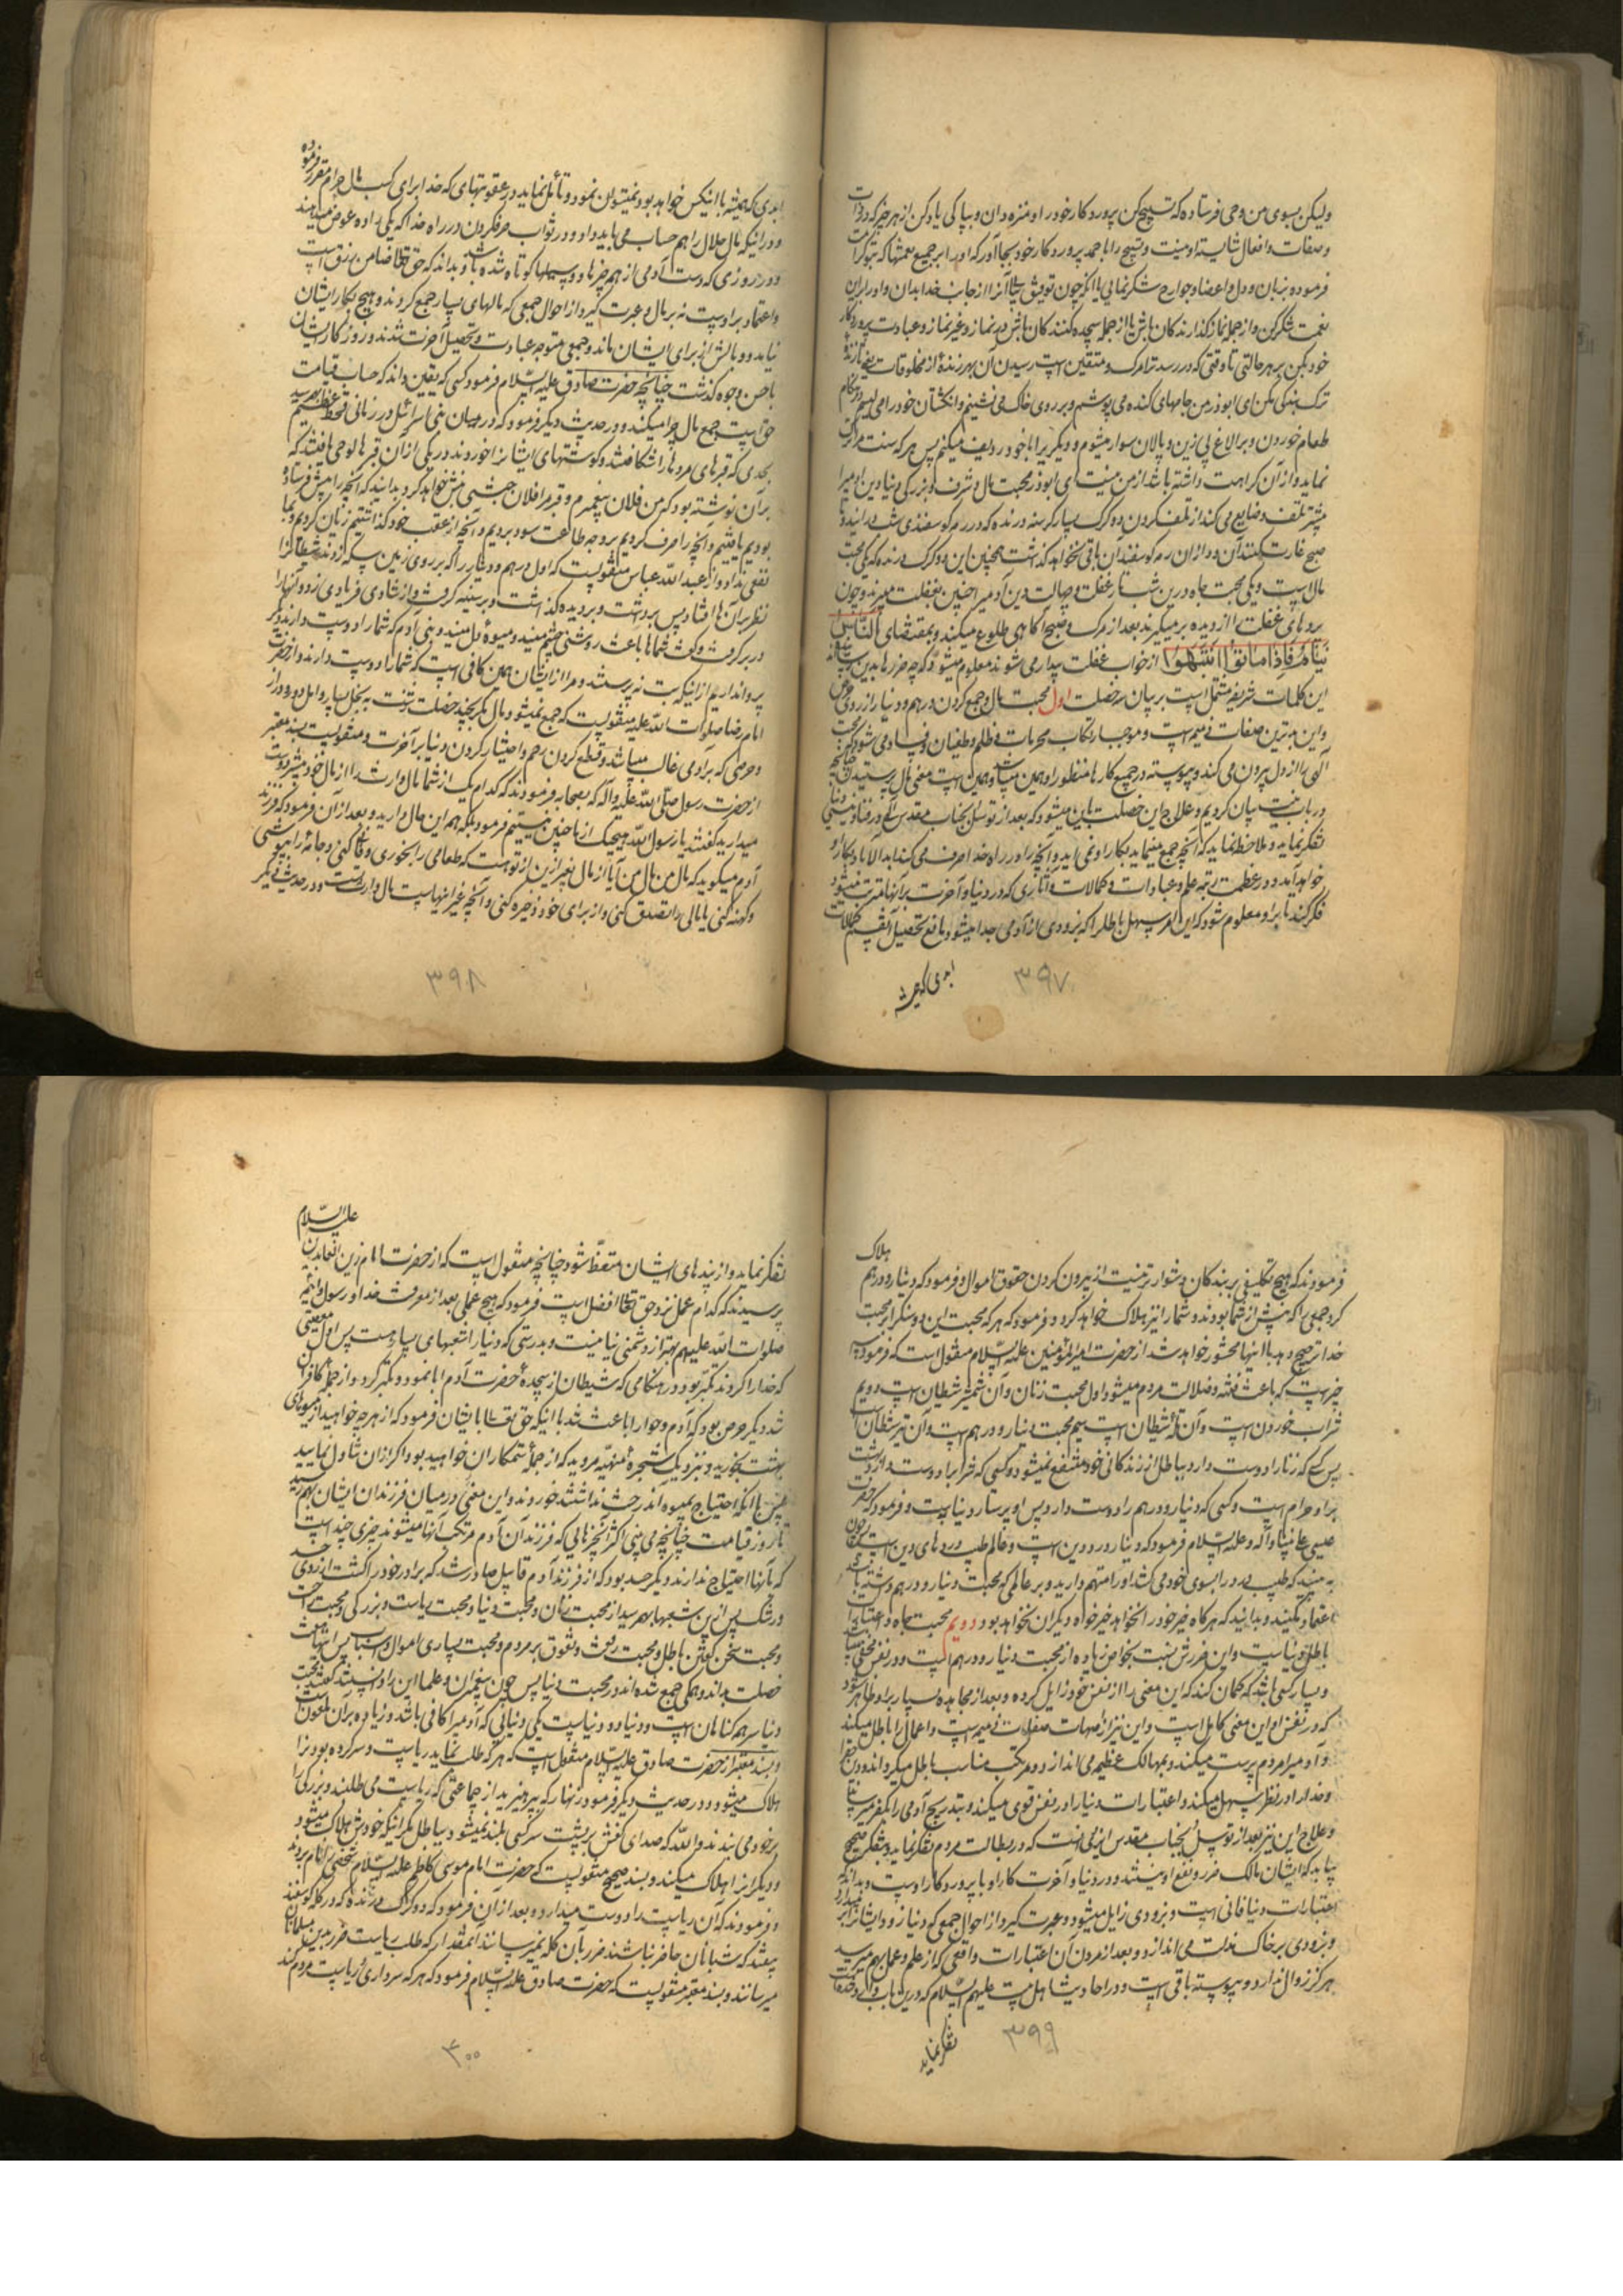 ولیکن بسوی من وحی فرستاده که تسبیح کن پروردکار خود را و منزه دان و بپاکی یاد کن از هر چیز که در ذات
و صفات و افعال شایسته او نیست و تسبیح را با حمد پروردکار خود بجا آور که او را بر جمیع نعمتها که بتو کرامت
فرموده بزبان و دل و اعضا و جوارح شکر نمایی یا آنکه چون توفیق تسبیح یابی آنرا از جانب خدا بدان و او را بر این
نعمت شکر کن و از جمله نماز کذارندکان باش یا از جمله سجده کنندکان باش در نماز و غیر نماز و عبادت پروردکار
خود بکن بر هر حالتی تا وقتی که در رسد ترا مرک و متیقن است رسیدن آن بهر زنده از مخلوقات یعنی تا زنده
ترک بندکی مکن ای ابوذر من جامهای کنده می پوشم و بر روی خاک می نشینم و انکشتان خود را می لیسم در هنکام
طعام خوردن و بر الاغ بی زین و پالان سوار میشوم و دیکریرا با خود ردیف میکنم پس هر که سنت مرا ترک
نماید و از آن کراهت داشته باشد از من نیست ای ابوذر محبت مال و شرف و بزرکی دنیا دین آدمیرا
بیشتر تلف و ضایع می کند از تلف کردن دو کرک بسیار کرسنه درنده که در رمه کوسفندی شب در آیند و تا
صبح غارت کنند آن و از ان رمه کوسفند آن باقی نخواهد کذاشت همچنین این دو کرک درنده که یکی محبت
مال است و یکی محبت جاه درین شب تار غفلت و جهالت دین آدمیرا چنین بغفلت میبرند و چون
پردهای غفلت را از دیده بر میکیرند بعد از مرک و صبح آکاهی طلوع میکند و بمقتضای النَّاسُ
نِیَامٌ فَاِذَا مَاتُوا اِنْتَبَهُوا از خواب غفلت بیدار می شوند معلوم میشود که چه ضررها بدین رسیده
این کلمات شریفه مشتمل است بر بیان سه خصلت اول محبت مال و جمع کردن درهم و دنیار از روی حرص
و این بدترین صفات ذمیمه است و موجب ارتکاب محرمات و ظلم و طغیان و فساد می شود و محبت
آلهی را از دل بیرون می کند و پیوسته در جمیع کارها منظور او همین میباشد و همین است معنی مال پرستیدن چنانچه
در باب نیت بیان کردیم و علاج این خصلت باین میشود که بعد از توسل بجناب مقدس آلهی در فنا و نیستی دنیا
تفکر نماید و ملاحظه نماید که آنچه جمع مینماید بکار او نمی آید و آنچه را در راه خدا صرف می کند ابد الاباد بکار او
خواهد آمد و در عظمت رتبه علم و عبادات و کمالات و آثاری که در دنیا و آخرت بر آنها مترتب میشود
فکر کند تا بر او معلوم شود که این امر سهل باطل را که بزودی از آدمی جدا میشود مانع تحصیل آنقسم کمالات
ابدی که همیشه
۳۹۷
فرموده
ابدی که همیشه با انیکس خواهد بود نمیتوان نمود و تأمل نماید در عقوبتهای که خدا برای کسب مال حرام مقرر
و در انیکه مال حلال را هم حساب می باید داد و در ثواب صرف کردن در راه خدا که یکی را ده عوض میدهند
و در روزی که دست آدمی از همه چیزها و وسیلها کوتاه شده باشد و بداند که حق تعالی ضامن رزق است
و اعتماد بر اوست نه بر مال و عبرت کیرد از احوال جمعی که مالهای بسیار جمع کردند و هیچ بکار ایشان
نیامد و وبالش از برای ایشان ماند و جمعی متوجه عبادت و تحصیل آخرت شدند و روزکار ایشان
باحسن وجوه کذشت چنانچه حضرت صادق علیه السّلام فرمود کسی که یقین داند که حساب قیامت
حق است جمع مال چرا میکند و در حدیث دیکر فرمود که در میان بنی اسرائیل در زمانی قحط عظیم بهم رسید
بحدی که قبرهای مرده ها را شکافتند و کوشتهای ایشانرا خوردند در یکی از آن قبرها لوحی یافتند که
بر آن نوشته بود که من فلان پیغمبرم و قبر مرا فلان حبشی نبش خواهد کرد و بدانید که آنچه را پیش فرستاده
بودیم یافتیم و آنچه را صرف کردیم بر وجه طاعت سود بردیم و آنچه از عقب خود کذاشتیم زیان کردیم و بما
نفعی نداد و از عبد اللّه عباس منقولست که اول درهم و دیناری را که بر روی زمین سکه زدند شیطان را
نظر بر ان ها افتاد پس برداشت و بر دیده کذاشت و بر سینه کرفت و از شادی فریادی زد و آنها را
در بر کرفت و کفت شماها باعث روشنی چشم منید و میوهٔ دل منید و بنی آدم که شما را دوست دارند دیکر
پروا ندارم از انیکه بت نپرستند و مرا از ایشان همین کافی است که شما را دوست دارند و از حضرت
امام رضا صلوات اللّه علیه منقولست که جمع نمیشود مال مکر بپنج خصلت زشت به بخل بسیار و امل دور و دراز
و حرصی که بر آدمی غالب میباشد و قطع کردن رحم و اختیار کردن دنیا بر آخرت و منقولست بسند معتبر
از حضرت رسول صلی اللّه علیه و آله که بصحابه فرمودند که کدام یک از شما مال وارث را از مال خود بیشتر دوست
میدارید کفتند یا رسول اللّه هیچیک از ما چنین نیستیم فرمود بلکه همه این حال دارید و بعد از آن فرمود که فرزند
آدم میکوید که مال من مال من آیا از مال بغیر ازین از تو هست که طعامی را بخوری و فانی کنی و جامهٔ را بپوشی
و کهنه کنی یا مالی را تصدق کنی و از برای خود ذخیره کنی و آنچه غیر اینهاست مال وارثست و در حدیث دیکر
۳۹۸
هلاک
فرمودند که هیچ تکلیفی بر بندکان دشوارتر نیست از بیرون کردن حقوق اموال و فرمود که دینار و درهم
کرد جمعی را که پیش از شما بودند و شما را نیز هلاک خواهد کرد و فرمود که هر که محبت این دو سنک را بر محبت
خدا ترجیح دهد با اینها محشور خواهد شد از حضرت امیر المؤمنین علیه السّلام منقول است که فرمود سه
چیز است که باعث فتنه و ضلالت مردم میشود اول محبت زنان و آن شمشیر شیطان است دویم
شراب خوردن است و آن تلهٔ شیطان است سیم محبت دینار و درهم است و آن تیر شیطان است
پس کسی که زنان را دوست دارد بباطل از زندکانی خود منتفع نمیشود و کسی که شراب را دوست دارد بهشت
بر او حرام است و کسی که دینار و درهم را دوست دارد پس او پرستار دنیاست و فرمود که حضرت
عیسی علی نبینا و آله و علیه السّلام فرمود که دینار درد دین است و عالم طبیب دردهای دین است پس چون
به بینید که طبیب درد را بسوی خود می کشد او را متهم دارید و بر عالمی که محبت دینار و درهم داشته باشد
اعتماد نکنید و بدانید که هرکاه خیر خود را نخواهد خیرخواه دیکران نخواهد بود و دویم محبت جاه و اعتبارات
باطل دنیاست و این ضررش نسبت بخواص زیاده از محبت دینار و درهم است و در نفس مخفی میباشد
و بسیار کسی باشد که کمان کند که این معنی را از نفس خود زایل کرده و بعد از مجاهده بسیار بر او ظاهر شود
که در نفس او این معنی کامل است و این نیز از امهات صفات ذمیمه است و اعمال را باطل میکند
و آدمیرا مردم پرست میکند و بمهالک عظیمه می اندازد و مرتکب مناصب باطل میکرداند و دین خدا
و خدا را در نظر سهل میکند و اعتبارات دنیا را در نفس قوی میکند و بتدریج آدمی را بکفر میرساند
و علاج این نیز بعد از توسل بجناب مقدس ایزدی آنست که در بطالت مردم تفکر نماید و بتفکر صحیح
بیابد که ایشان مالک ضرر و نفع او نیستند و در دنیا و آخرت کار او با پروردکار اوست و بداند که
اعتبارات دنیا فانی است و بزودی زایل میشود و عبرت کیرد از احوال جمعی که دنیا زود ایشان را بر میدارد
و بزودی بر خاک مذلت می اندازد و بعد از مردن آن اعتبارات واقعی که از علم و عمل بهم میرسد
هرکز زوال ندارد و پیوسته باقی است و در احادیث اهل بیت علیهم السّلام که درین باب وارد شده
تفکر نماید
۳۹۹
علیه السّلام
تفکر نماید و از پندهای ایشان متعظ شود چنانچه منقول است که از حضرت امام زین العابدین
پرسیدند که کدام عمل نزد حق تعالی افضل است فرمود که هیچ عملی بعد از معرفت خدا و رسول و ائمه
صلوات اللّه علیهم بهتر از دشمنی دنیا نیست و بدرستی که دنیا را شعبهای بسیار هست پس اول معصیتی
که خدا را کردند تکبّر بود در هنکامی که شیطان از سجدهٔ حضرت آدم ابا نمود و تکبر کرد و از جملهٔ کافران
شد دیکر حرص بود که آدم و حوا را باعث شد با انیکه حق تعالی بایشان فرمود که از هر چه خواهید از میوهای
بهشت بخورید و بنزدیک شجرهٔ منهیّه مروید که از جملهٔ ستمکاران خواهید بود اکر از ان تناول نمایید
پس با انکه احتیاج بمیوه آن درخت نداشتند خوردند و این معنی در میان فرزندان ایشان بهم رسید
تا روز قیامت چنانچه می بینی اکثر انچیزهایی که فرزندان آدم مرتکب آنها میشوند چیزی چند است
که بآنها احتیاج ندارند دیکر حسد بود که از فرزند آدم قابیل صادر شد که برادر خود را کشت از روی حسد
و رشک پس ازین شعبها بهم رسید از محبت زنان و محبت دنیا و محبت ریاست و بزرکی و محبت راحت
و محبت سخن کفتن باطل و محبت رفعت و تفوق بر مردم و محبت بسیاری اموال و اسباب پس اینها هفت
خصلت بداند و همکی جمع شده اند در محبت دنیا پس چون پیغمبران و علما این را دانستند کفتند محبت
دنیا سر همه کناهان است و دنیا دو دنیاست یکی دنیایی که آدمیرا کافی باشد و زیاده بر آن ملعون است
و بسند معتبر از حضرت صادق علیه السّلام منقول است که هر که طلب نماید ریاست و سرکرده بودن را
هلاک میشود و در حدیث دیکر فرمود زنهار که بپرهیزید از جماعتی که ریاست می طلبند و بزرکی را
بر خود می بندند و اللّه که صدای کفش بر پشت سر کسی بلند نمیشود بباطل مکر انیکه خود هلاک میشود
و دیکران را هلاک میکند و بسند صحیح منقولست که حضرت امام موسی کاظم علیه السّلام شخصی را نام بردند
و فرمودند که آن ریاست را دوست میدارد و بعد از آن فرمود که دو کرک درنده که در کلهٔ کوسفند
بیفتند که شبانان حاضر نباشند ضرر بآن کله نمیرسانند آنمقدار که طلب ریاست ضرر بدین مسلمانان
میرسانند و بسند معتبر منقولست که حضرت صادق علیه السّلام فرمود که هر که سرداری و ریاست مردم کند
۴۰۰